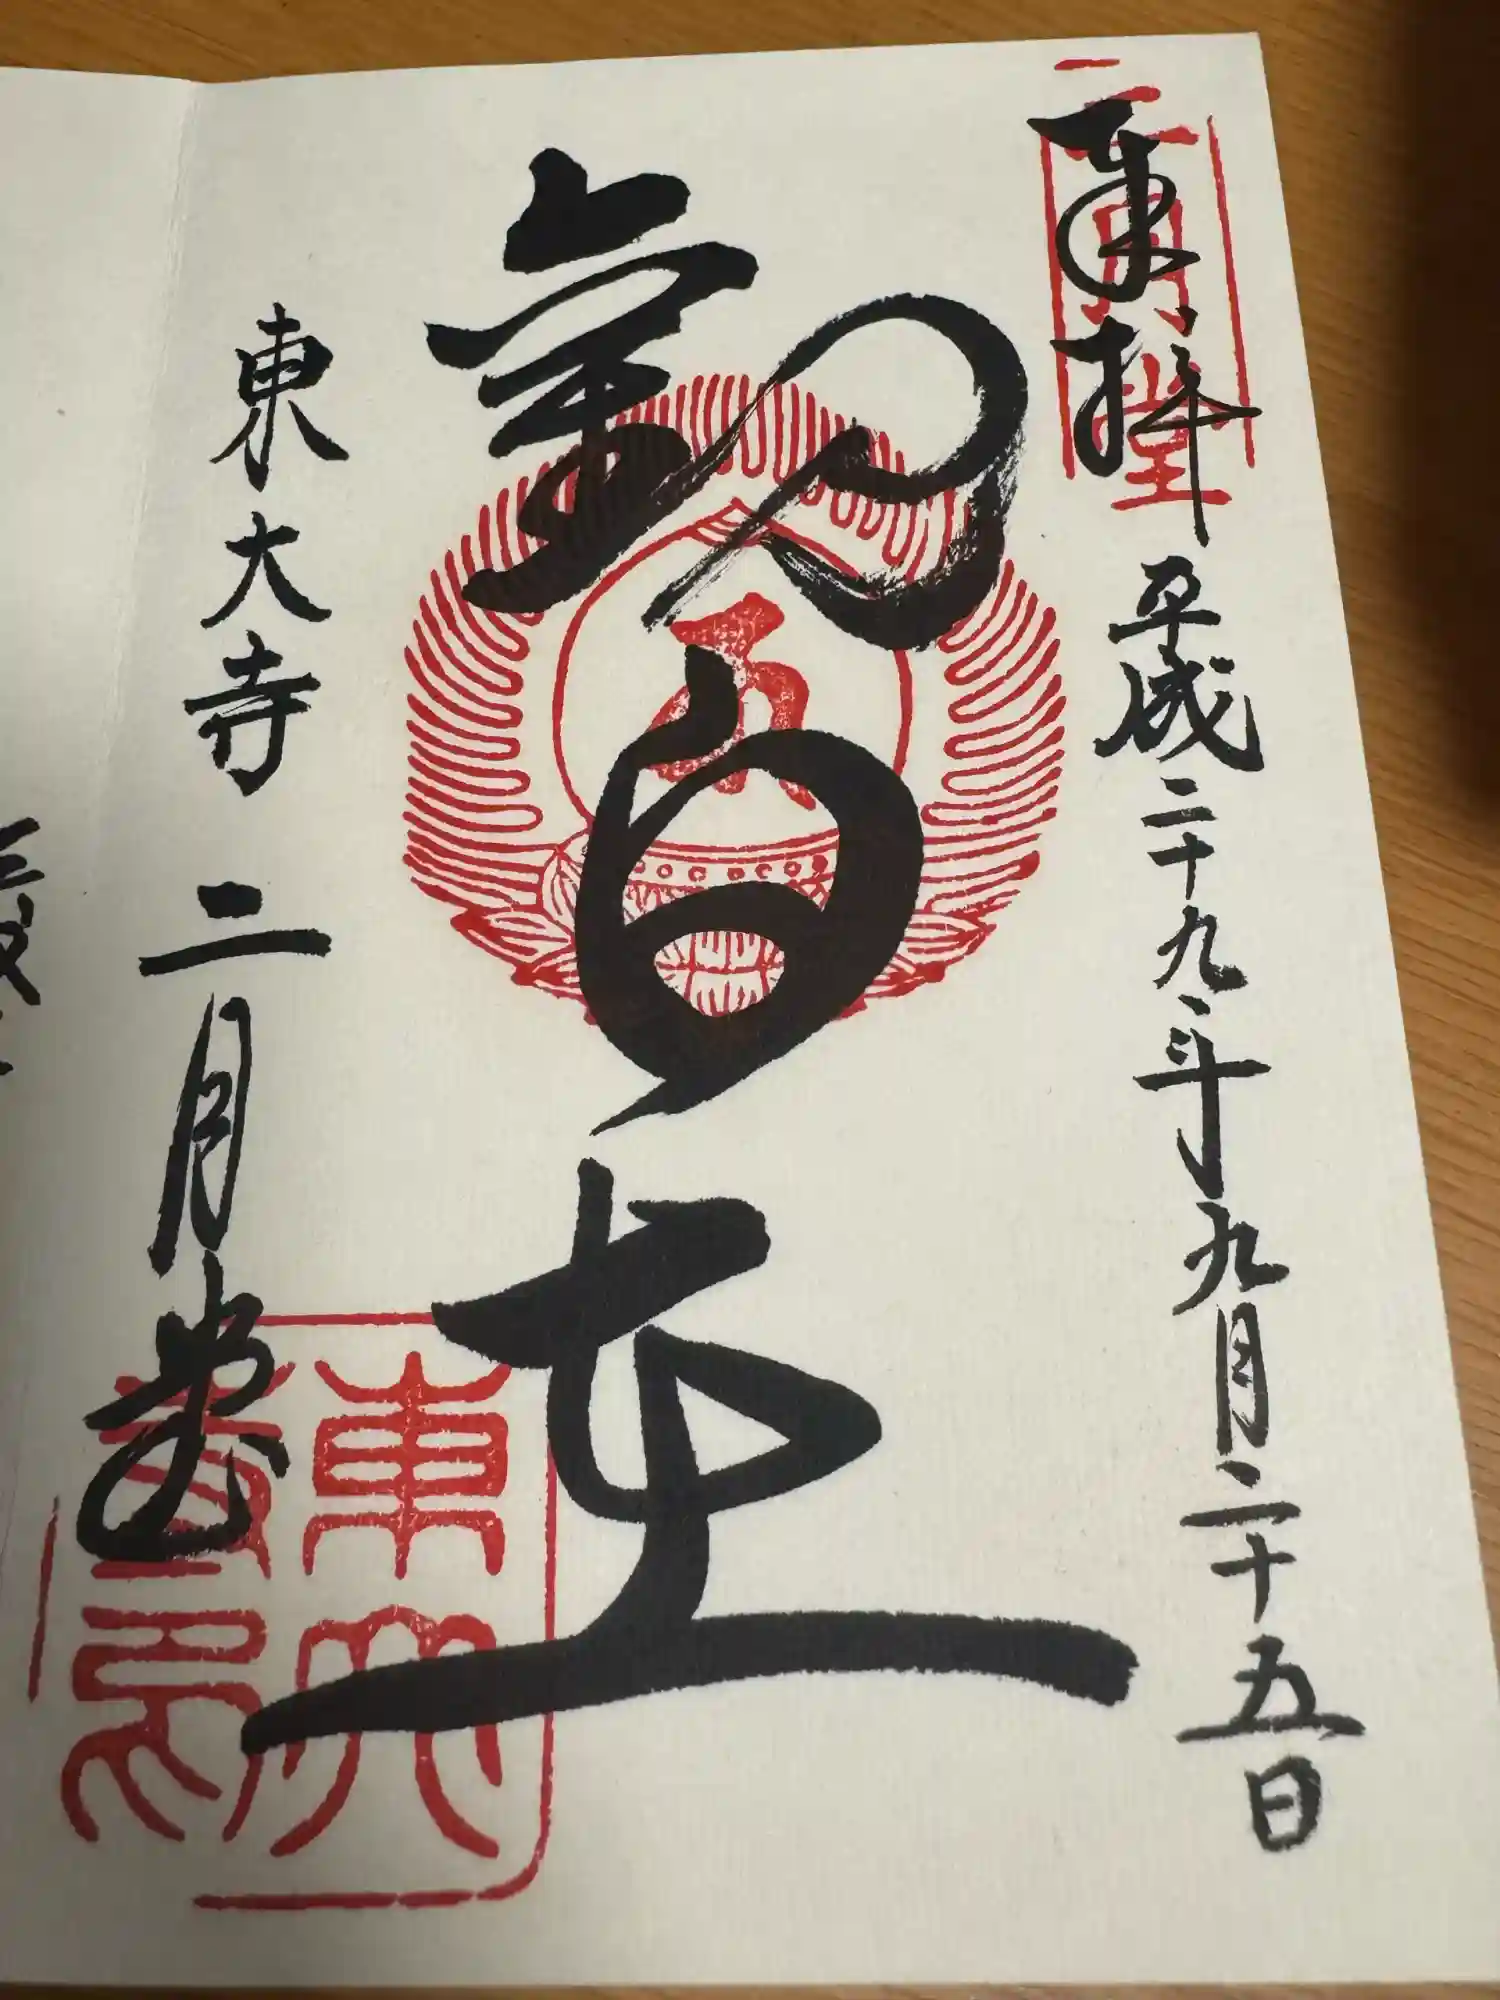 奉拝
平成二十九年九月二十五日
二月堂
観自在
東大寺 二月堂
東大寺印